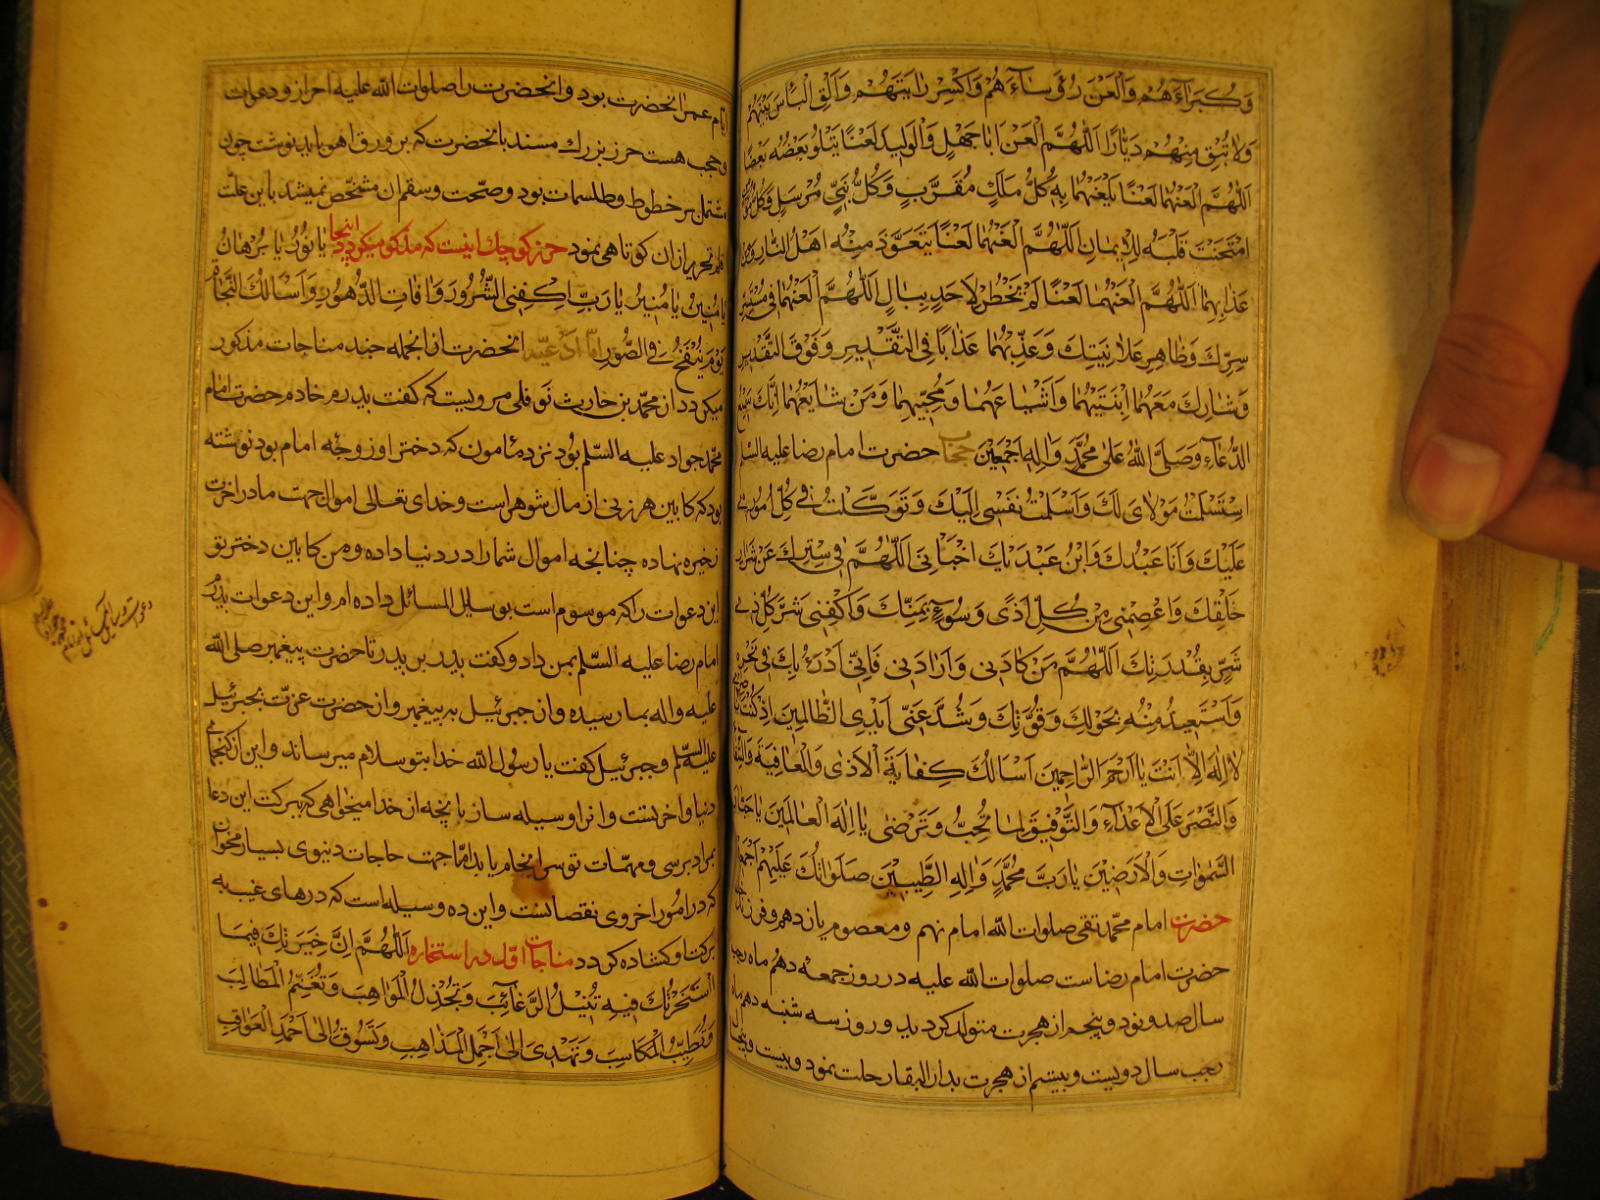 وَكُبَرَآءَهُمْ وَالْعَنْ رُؤَسَآءَهُمْ وَاكْسِرْ رٰايَتَهُمْ وَاَلْقِ الْبَاْسَ بَيْنَهُمْ
وَلٰا تُبْقِ مِنْهُمْ دَيّٰارًا اَللّٰهُمَّ الْعَنْ اَبٰا جَهْلٍ وَالْوَلِيدَ لَعْنًا يَتْلُو بَعْضُهُ بَعْضًا
اَللّٰهُمَّ الْعَنْهُمٰا لَعْنًا يَلْعَنُهُمٰا بِهِ كُلُّ مَلَكٍ مُقَرَّبٍ وَكُلُّ نَبِيٍّ مُرْسَلٍ وَكُلُّ مُؤْمِنٍ
امْتَحَنْتَ قَلْبَهُ لِلْاِيمٰانِ اَللّٰهُمَّ الْعَنْهُمٰا لَعْنًا يَتَعَوَّذُ مِنْهُ اَهْلُ النّٰارِ وَمِنْ
عَذٰابِهِمٰا اَللّٰهُمَّ الْعَنْهُمٰا لَعْنًا لَمْ يَخْطُرْ لِاَحَدٍ بِبٰالٍ اَللّٰهُمَّ الْعَنْهُمٰا فِي مُسْتَسِرِّ
سِرِّكَ وَظٰاهِرِ عَلٰانِيَتِكَ وَعَذِّبْهُمٰا عَذٰابًا فِي التَّقْدِيرِ وَفَوْقَ التَّقْدِيرِ
وَشٰارِكْ مَعَهُمٰا ابْنَتَيْهِمٰا وَاَشْيٰاعَهُمٰا وَمُحِبِّيهِمٰا وَمَنْ شٰايَعَهُمٰا اِنَّكَ سَمِيعُ
الدُّعٰآءِ وَصَلَّى اللّٰهُ عَلٰى مُحَمَّدٍ وَاٰلِهِ اَجْمَعِينَ حجاب حضرت امام رضا عليه السلم
اِسْتَسْلَمْتُ مَوْلٰاىَ لَكَ وَاَسْلَمْتُ نَفْسِى اِلَيْكَ وَتَوَكَّلْتُ فِى كُلِّ اُمُورِى
عَلَيْكَ وَاَنَا عَبْدُكَ وَابْنُ عَبْدَيْكَ اخْبَاْنِى اَللّٰهُمَّ فِى سِتْرِكَ عَنْ شِرٰارِ
خَلْقِكَ وَاعْصِمْنِى مِنْ كُلِّ اَذًى وَسُوءٍ بِمَنِّكَ وَاكْفِنِى شَرَّ كُلِّ ذِى
شَرٍّ بِقُدْرَتِكَ اَللّٰهُمَّ مَنْ كٰادَنِى وَاَرٰادَنِى فَاِنِّى اَدْرَءُ بِكَ فِى نَحْرِهِ
وَاَسْتَعِيذُ مِنْهُ بِحَوْلِكَ وَقُوَّتِكَ وَشُدَّ عَنِّى اَيْدِى الظّٰالِمِينَ اِذْ كُنْتَ نٰاصِرِى
لٰا اِلٰهَ اِلّٰا اَنْتَ يٰا اَرْحَمَ الرّٰاحِمِينَ اَسْاَلُكَ كِفٰايَةَ الْاَذٰى وَالْعٰافِيَةَ وَالشِّفٰآءَ
وَالنَّصْرَ عَلَى الْاَعْدٰآءِ وَالتَّوْفِيقَ لِمٰا تُحِبُّ وَتَرْضٰى يٰا اِلٰهَ الْعٰالَمِينَ يٰا جَبّٰارَ
السَّمٰوٰاتِ وَالْاَرَضِينَ يٰا رَبَّ مُحَمَّدٍ وَاٰلِهِ الطَّيِّبِينَ صَلَوٰاتُكَ عَلَيْهِمْ اَجْمَعِينَ
حضرت امام محمّد تقى صلوات اللّه امام نهم و معصوم يازدهم و فرزند
حضرت امام رضاست صلوات اللّه عليه در روز جمعه دهم ماه رجب
سال صد و نود و پنجم از هجرت متولد كرديد و روز سه شنبه دهم ماه
رجب سال دويست و بيستم از هجرت بدار البقا رحلت نمود و بيست و پنجسال
ايّام عمر انحضرت بود و انحضرت را صلوات اللّه عليه احراز و دعوات
و حجب هست حرز بزرك مسند بانحضرت كه بر ورق اهو بايد نوشت چون
مشتمل بر خطوط و طلسمات بود و صحّت و سقم ان مشخّص نميشد باين علّت
قلم تحرير از ان كوتاهى نمود حرز كوچك اينست كه مذكور ميكردد اينجا يٰا نُورُ يٰا بُرْهٰانُ
يٰا مُبِينُ يٰا مُنِيرُ يٰا رَبِّ اكْفِنِى الشُّرُورَ وَاٰفٰاتِ الدُّهُورِ وَاَسْاَلُكَ النَّجٰاةَ
يَوْمَ يُنْفَخُ فِى الصُّورِ امّا ادعيّه انحضرت از انجمله چند مناجات مذكور
ميكردد از محمّد بن حارث نوفلى مرويست كه كفت پدرم خادم حضرت امام
محمّد جواد عليه السّلم بود نزد مأمون كه دختر او زوجه امام بود نوشته
بود كه كابين هر زنى از مال شوهر است و خداى تعالى اموال جهت ما در اخرت
ذخيره نهاده چنانچه اموال شما را در دنيا داده و من كابين دختر تو
اين دعوات را كه موسوم است بوسايل المسائل داده ام و اين دعوات پدرم
امام رضا عليه السّلم بمن داد و كفت پدر بر پدر تا حضرت پيغمبر صلى اللّه
عليه و اله بما رسيده و ان جبرئيل به پيغمبر و ان حضرت عزّت بجبرئيل
عليه السّلم و جبرئيل كفت يا رسول اللّه خدا بتو سلام ميرساند و اين از كنجهاى
دنيا و اخرتست و انرا وسيله ساز بانچه از خدا ميخواهى كه ببركت اين دعا
بمراد برسى و مهمّات تو سرانجام يابد امّا جهت حاجات دنيوى بسيار مخوان
كه در امور اخروى نقصانست و اين ده وسيله است كه درهاى غيب به
بركت او كشاده كردد مناجات اوّل در استخاره اَللّٰهُمَّ اِنَّ خِيَرَتَكَ فِيمَا
اسْتَخَرْتُكَ فِيهِ تُنِيلُ الرَّغٰآئِبَ وَتُجْزِلُ الْمَوٰاهِبَ وَتُغَنِّمُ الْمَطٰالِبَ
وَتُطَيِّبُ الْمَكٰاسِبَ وَتَهْدِى اِلٰى اَجْمَلِ الْمَذٰاهِبِ وَتَسُوقُ اِلٰى اَحْمَدِ الْعَوٰاقِبِ